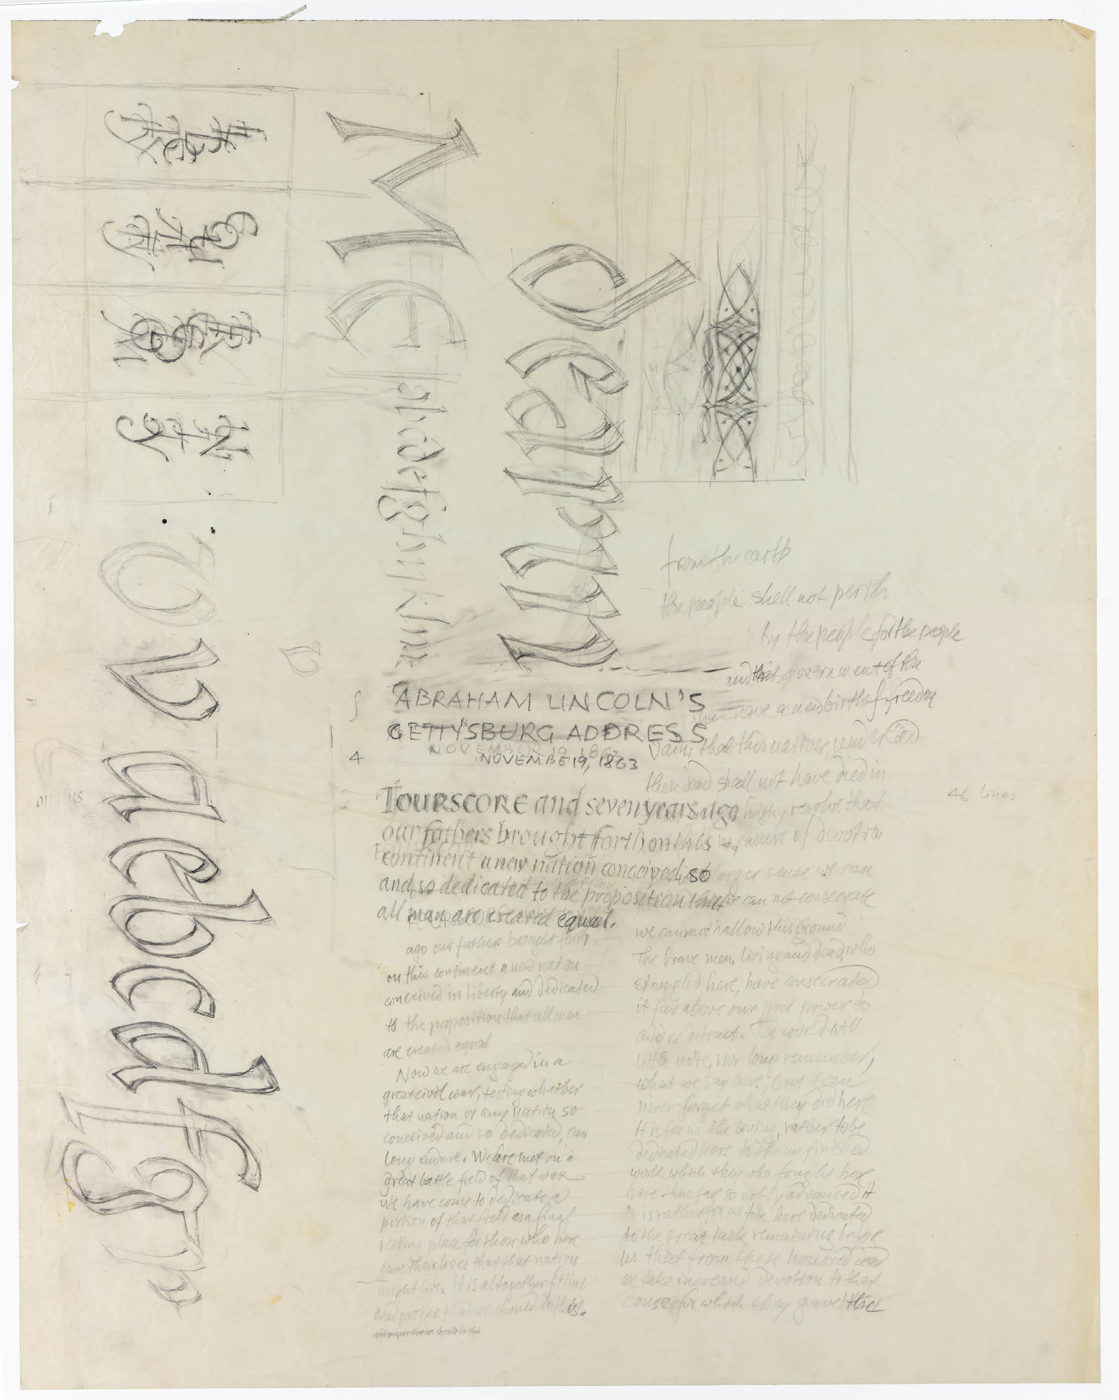 M e
a b c d e f g h i j k l m
d e a n n
o v a e b c d f g p
ABRAHAM LINCOLN'S
GETTYSBURG ADDRESS
NOVEMBER 19, 1863
NOVEMBE 19, 1863
4
FOURSCORE and seven years ago
our fathers brought forth on this
continent a new nation conceived so
and so dedicated to the proposition that
all man are created equal.
ago our fathers brought forth
on this continent a new nation
conceived in liberty and dedicated
to the proposition that all men
are created equal
Now we are engaged in a
great civil war, testing whether
that nation or any nation so
conceived and so dedicated, can
long endure. We are met on a
great battle field of that war
we have come to dedicate a
portion of that field as a final
resting place for those who here
gave their lives that that nation
might live. It is altogether fitting
and proper that we should do this.
and proper that we should do this
from the earth
the people shall not perish
by the people for the people
and that government of the
have a new birth of freedom
vain; that this nation under God
these dead shall not have died in
highly resolve that
measure of devotion
larger sense we can
we can not consecrate
we cannot hallow this ground
The brave men, living and dead, who
struggled here, have consecrated
it far above our poor power to
add or detract. The world will
little note, nor long remember,
what we say here, but it can
never forget what they did here
It is for us the living, rather to be
dedicated here to the unfinished
work which they who fought here
have thus far so nobly advanced it
is rather for us for here dedicated
to the great task remaining before
us that from these honored dead
we take increased devotion to that
cause for which they gave their
46 lines